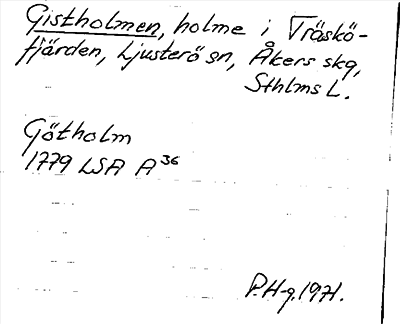 Gistholmen, holme i Träskö-
fjärden, Ljusterö sn, Åkers skg,
Sthlms L.
Götholm
1779 LSA A 36
P.H-g. 1971.